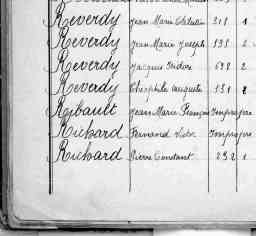 Reverdy Jean Marie 218 1
Reverdy Jean Marie Joseph 198 2
Reverdy Jacques Isidore 698 2
Reverdy Théophile Auguste 151 2
Ribault Jean Marie François Impropre
Richard Fernand Victor Impropre
Richard Pierre Constant 292 1